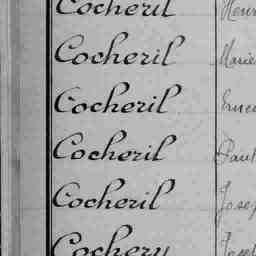 Cocheril Henri
Cocheril Marie
Cocheril Ernes
Cocheril Paul
Cocheril Josep
Cochery Josep